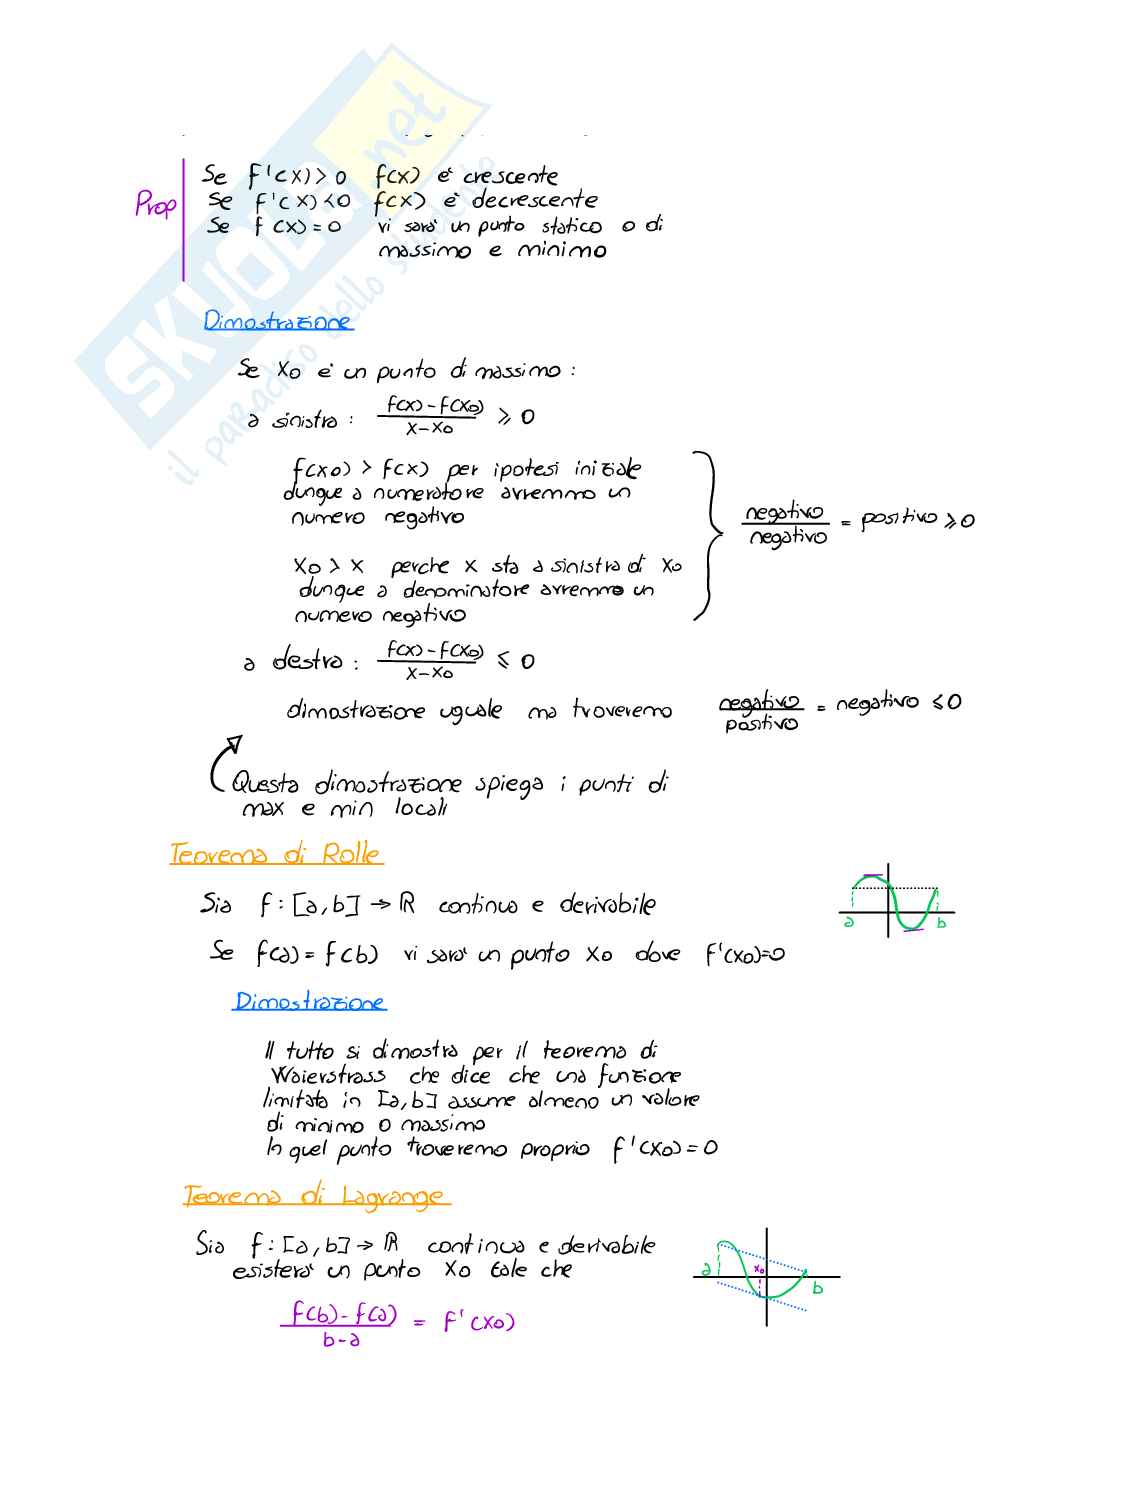 Prop
Se f'(x) > 0 f(x) è crescente
Se f'(x) < 0 f(x) è decrescente
Se f (x) = 0 vi sarà un punto statico o di
massimo e minimo
Dimostrazione
Se x₀ è un punto di massimo :
a sinistra : (f(x) - f(x₀))/(x - x₀) ⩾ 0
f(x₀) > f(x) per ipotesi iniziale
dunque a numeratore avremmo un
numero negativo
x₀ > x perche x sta a sinistra di x₀
dunque a denominatore avremmo un
numero negativo
negativo/negativo = positivo ⩾ 0
a destra : (f(x) - f(x₀))/(x - x₀) ⩽ 0
dimostrazione uguale ma troveremo negativo/positivo = negativo ⩽ 0
Questa dimostrazione spiega i punti di
max e min locali
Teorema di Rolle
Sia f : [a, b] → ℝ continua e derivabile
Se f(a) = f(b) vi sarà un punto x₀ dove f'(x₀)=0
a b
Dimostrazione
Il tutto si dimostra per il teorema di
Waierstrass che dice che una funzione
limitata in [a, b] assume almeno un valore
di minimo o massimo
In quel punto troveremo proprio f'(x₀) = 0
Teorema di Lagrange
Sia f : [a, b] → ℝ continua e derivabile
esisterà un punto x₀ tale che
(f(b) - f(a))/(b - a) = f'(x₀)
a x₀ b
SKUOLA.net
il paradiso dello studente